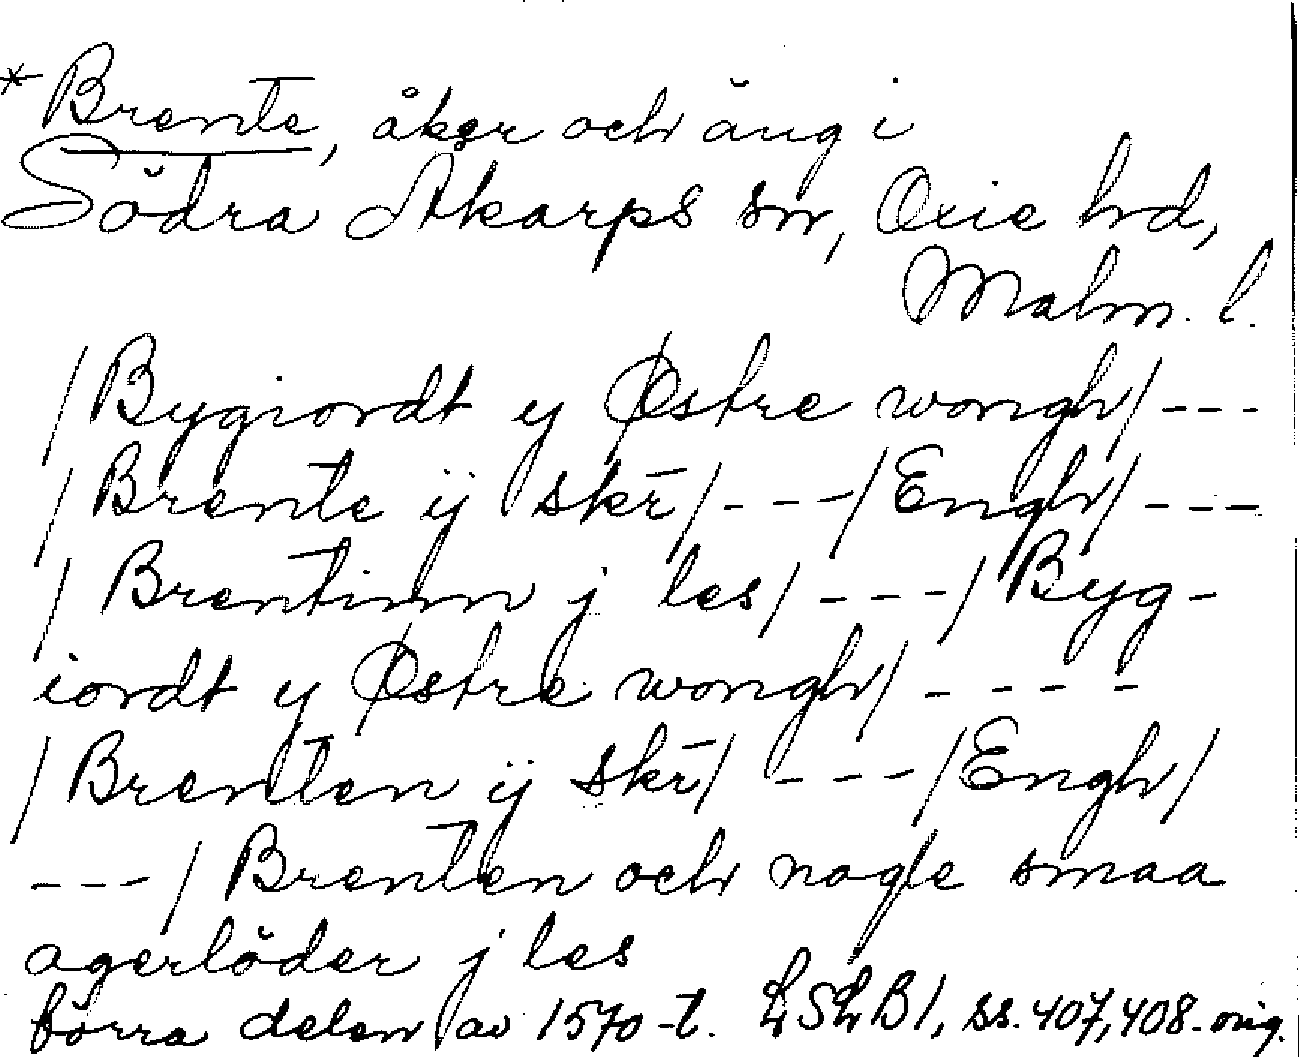 *Brente, åker och äng i
Södra Åkarps sn, Oxie hd,
Malm. l.
/Bygiordt y Østre wongh/ ---
/Brente ij skr̄/ ---/Engh/ ---
/Brentinn j les/ ---/Byg-
iordt y Østre wongh/ ----
/Brenten ij skr̄/ ---/Engh/
---/Brenten och nogle smaa
agerlöder j les
förra delen av 1570-t. LSLB1, ss. 407, 408. orig.